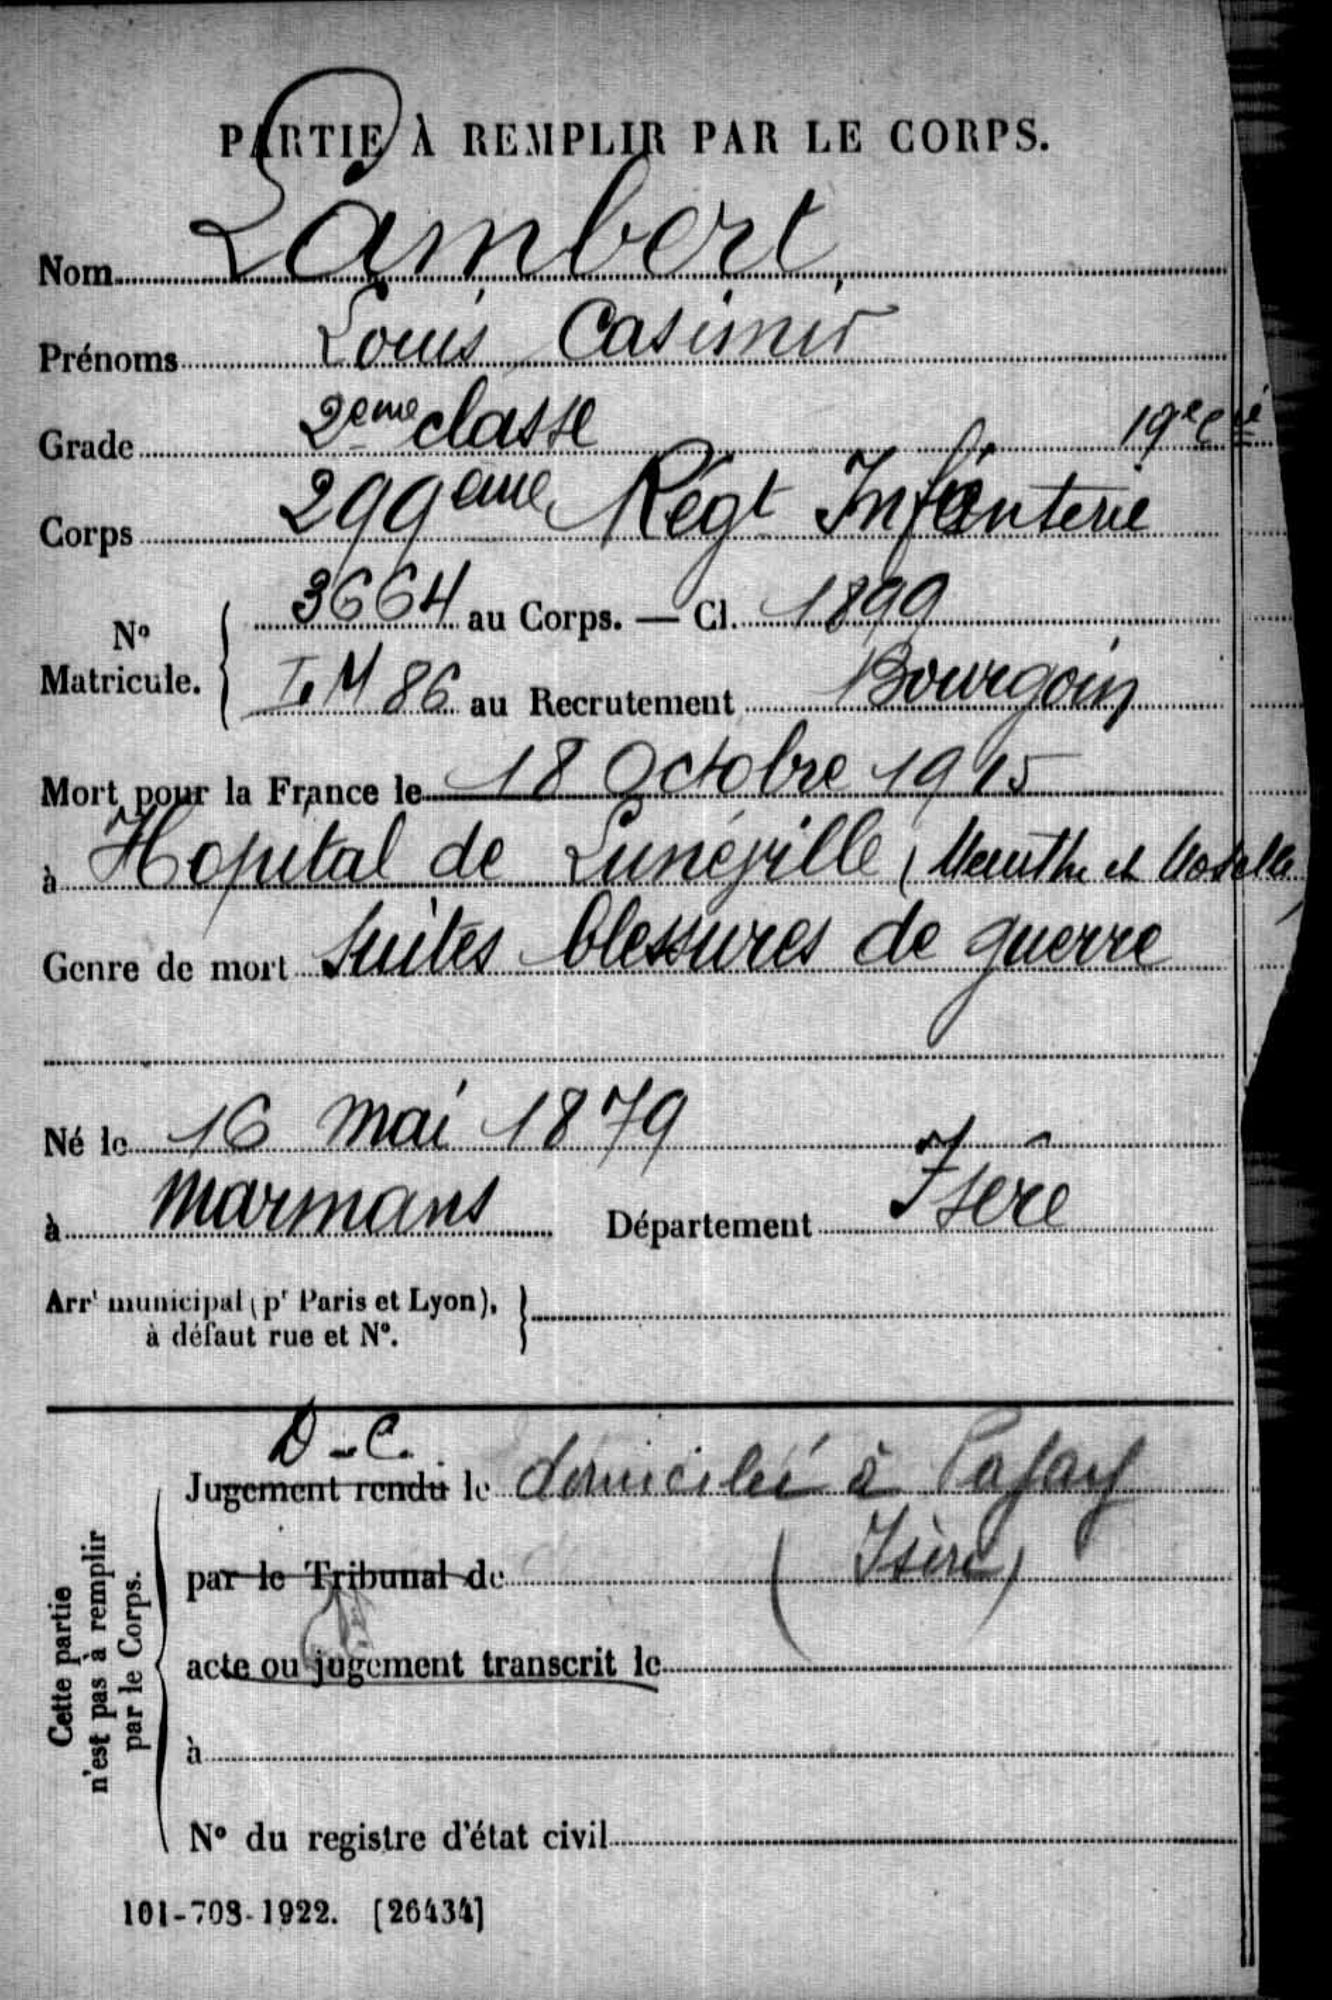 PARTIE À REMPLIR PAR LE CORPS.
Nom Lambert
Prénoms Louis Casimir
Grade 2eme classe 19e Cie
Corps 299eme Régt Infanterie
No Matricule. 3664 au Corps. — Cl. 1899
86 au Recrutement Bourgoin
Mort pour la France le 18 Octobre 1915
à Hopital de Lunéville (Meurthe et Moselle)
Genre de mort Suites blessures de guerre
Né le 16 Mai 1879
à Marmans Département Isère
Arrt municipal (pr Paris et Lyon), à défaut rue et No.
D-C.
Jugement rendu le domicilié à Pajay
par le Tribunal de (Isère)
acte ou jugement transcrit le
à
No du registre d'état civil
Cette partie n'est pas à remplir par le Corps.
101-708-1922. [26434]